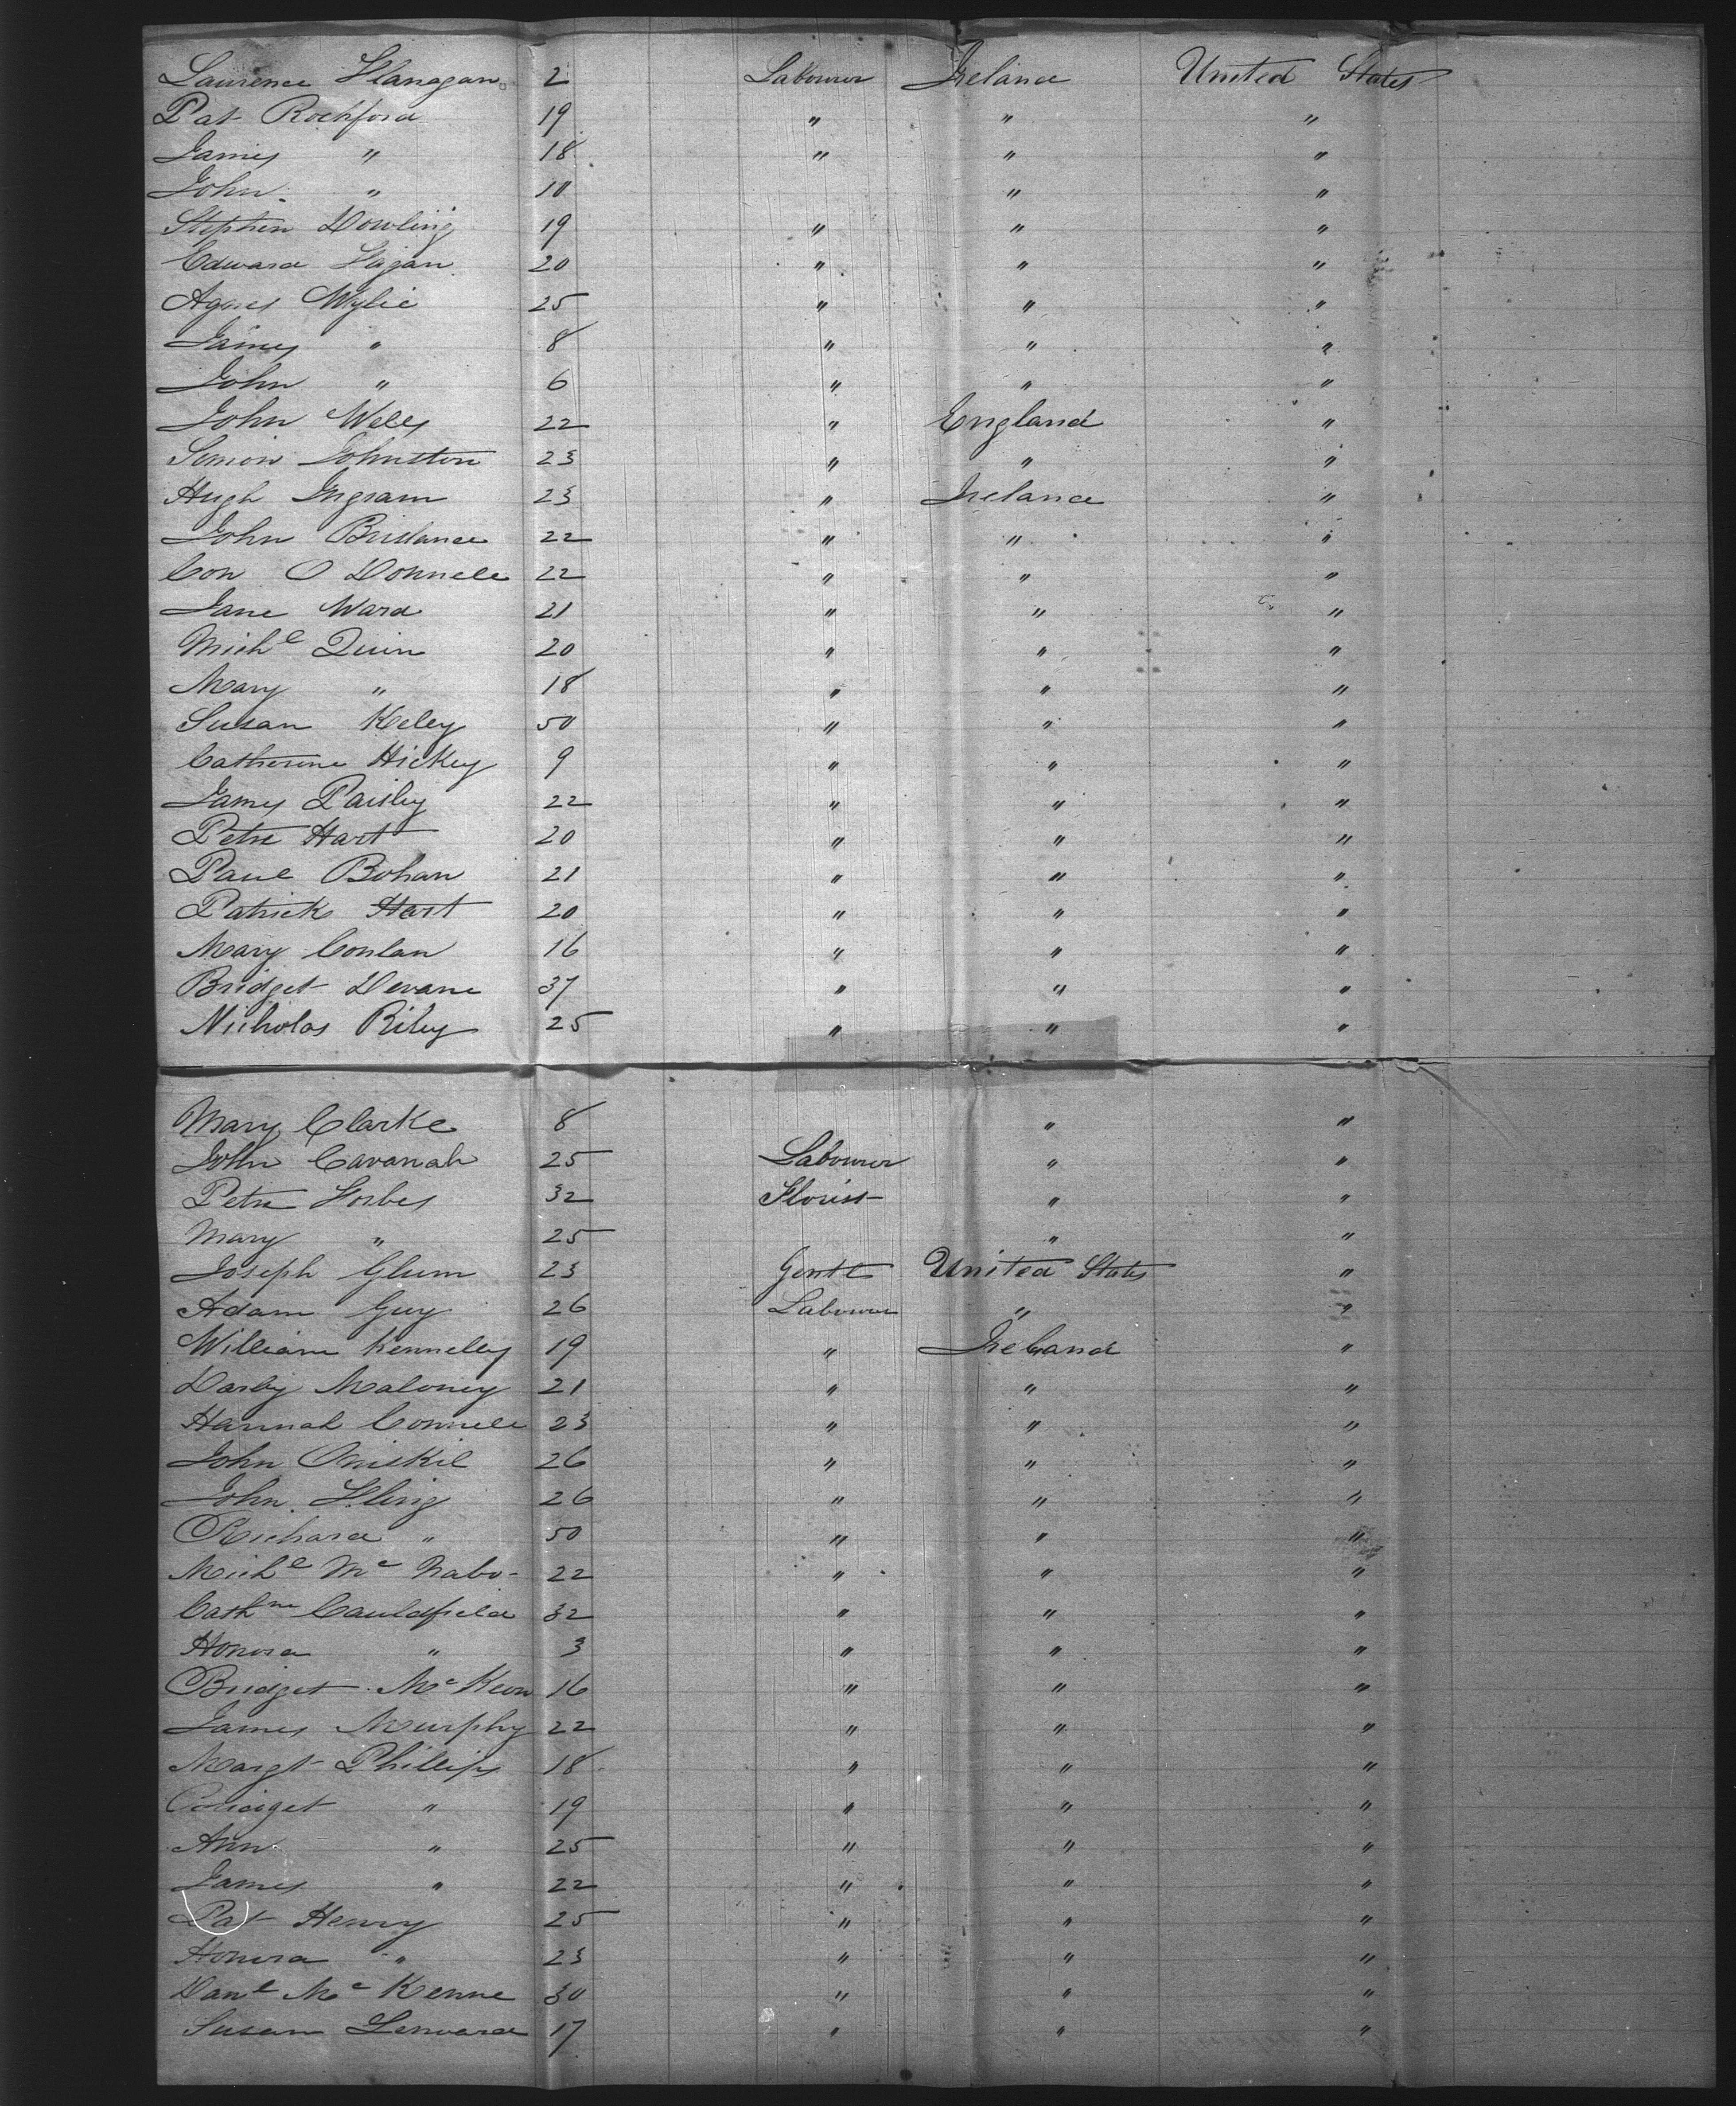 Laurence Flanagan 2 Labourer Ireland United States
Pat Rochford 19 " " "
James " 18 " " "
John " 10 " "
Stephen Dowling 19 " " "
Edward Hagan 20 " " "
Agnes Wylie 25 " " "
James " 8 " " "
John " 6 " " "
John Wells 22 " England "
Simon Johnston 23 " " "
Hugh Ingram 23 " Ireland "
John 22 " " "
Con O Donnell 22 " " "
Jane Ward 21 " " "
Michl Quin 20 " " "
Mary " 18 " " "
Susan Keley 50 " " "
Catherine Hickey 9 " " "
James Paisley 22 " " "
Peter Hart 20 " " "
Paul Bohan 21 " " "
Patrick Hart 20 " " "
Mary Conlan 16 " " "
Bridget Devane 37 " " "
Nicholas Riley 25 " " "
Mary Clarke 8 " "
John Cavanah 25 Labourer " "
Peter Forbes 32 Florist " "
Mary " 25 " "
Joseph Glum 23 Gentl United States "
Adam Guy 26 Labourer " "
William Kennelly 19 " Ireland "
Darby Maloney 21 " " "
Hannah Connell 23 " " "
John 26 " " "
John Fling 26 " " "
Richard " 50 " " "
Michl Mc Nabo 22 " " "
Cathne Cauldfield 32 " " "
Honora " 3 " " "
Bridget Mc Keon 16 " " "
James Murphy 22 " " "
Margt Phillips 18 " " "
Bridget " 19 " " "
Ann " 25 " " "
James " 22 " " "
Pat Henry 25 " " "
Honora " 23 " " "
Danl Mc Kenne 30 " " "
Susan Lenward 17 " " "